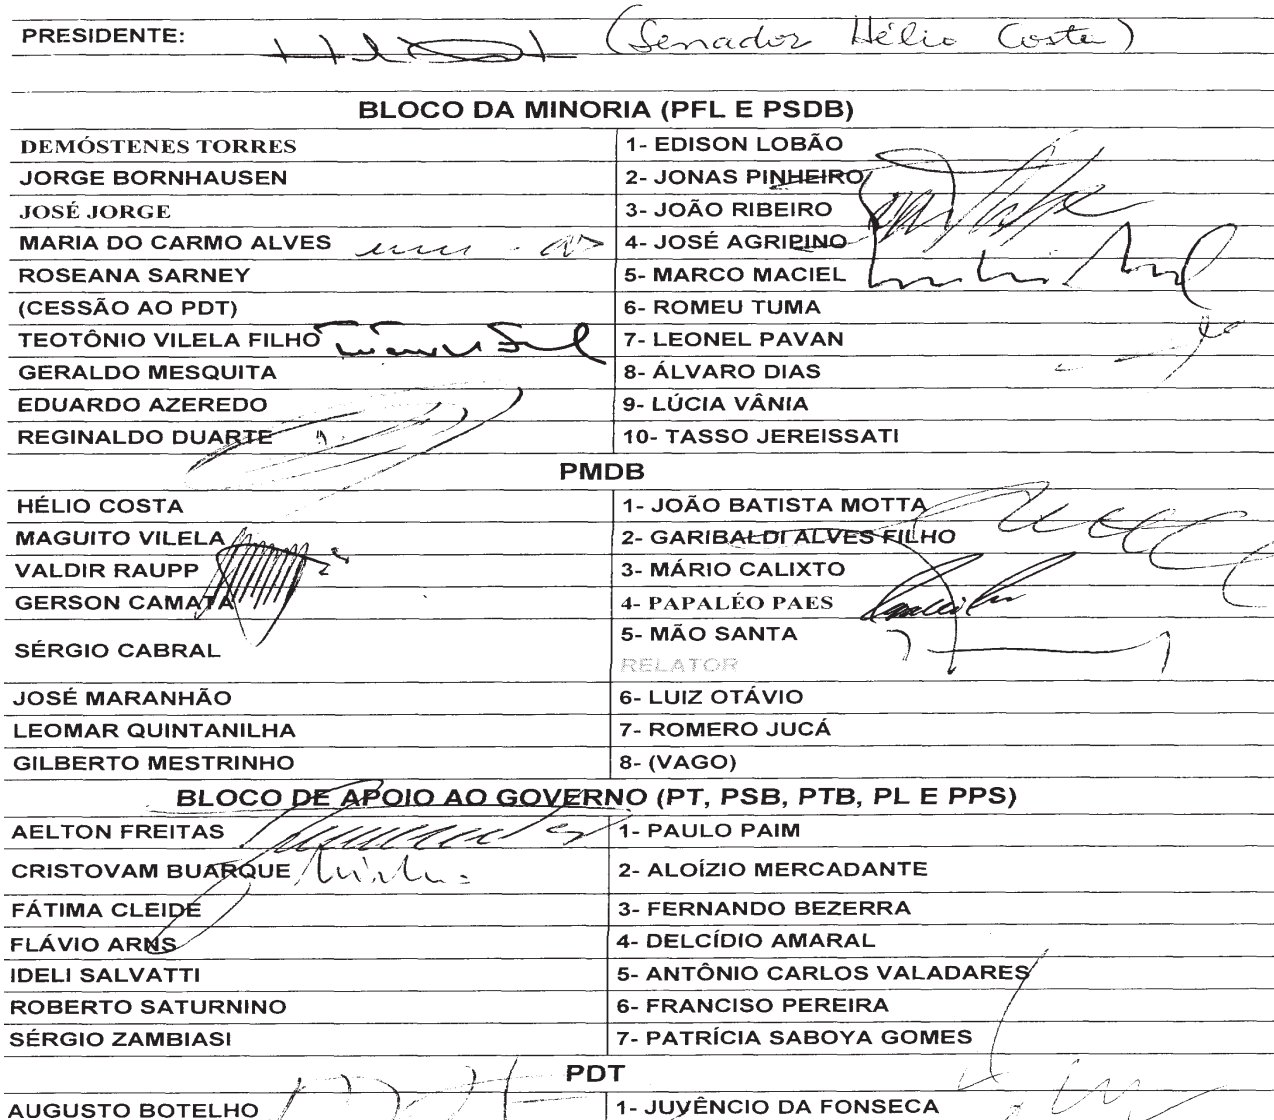 PRESIDENTE: (Senador Hélio Costa)
BLOCO DA MINORIA (PFL E PSDB)
DEMÓSTENES TORRES 1- EDISON LOBÃO
JORGE BORNHAUSEN 2- JONAS PINHEIRO
JOSÉ JORGE 3- JOÃO RIBEIRO
MARIA DO CARMO ALVES 4- JOSÉ AGRIPINO
ROSEANA SARNEY 5- MARCO MACIEL
(CESSÃO AO PDT) 6- ROMEU TUMA
TEOTÔNIO VILELA FILHO 7- LEONEL PAVAN
GERALDO MESQUITA 8- ÁLVARO DIAS
EDUARDO AZEREDO 9- LÚCIA VÂNIA
REGINALDO DUARTE 10- TASSO JEREISSATI
PMDB
HÉLIO COSTA 1- JOÃO BATISTA MOTTA
MAGUITO VILELA 2- GARIBALDI ALVES FILHO
VALDIR RAUPP 3- MÁRIO CALIXTO
GERSON CAMATA 4- PAPALÉO PAES
SÉRGIO CABRAL 5- MÃO SANTA
RELATOR
JOSÉ MARANHÃO 6- LUIZ OTÁVIO
LEOMAR QUINTANILHA 7- ROMERO JUCÁ
GILBERTO MESTRINHO 8- (VAGO)
BLOCO DE APOIO AO GOVERNO (PT, PSB, PTB, PL E PPS)
AELTON FREITAS 1- PAULO PAIM
CRISTOVAM BUARQUE 2- ALOÍZIO MERCADANTE
FÁTIMA CLEIDE 3- FERNANDO BEZERRA
FLÁVIO ARNS 4- DELCÍDIO AMARAL
IDELI SALVATTI 5- ANTÔNIO CARLOS VALADARES
ROBERTO SATURNINO 6- FRANCISO PEREIRA
SÉRGIO ZAMBIASI 7- PATRÍCIA SABOYA GOMES
PDT
AUGUSTO BOTELHO 1- JUVÊNCIO DA FONSECA